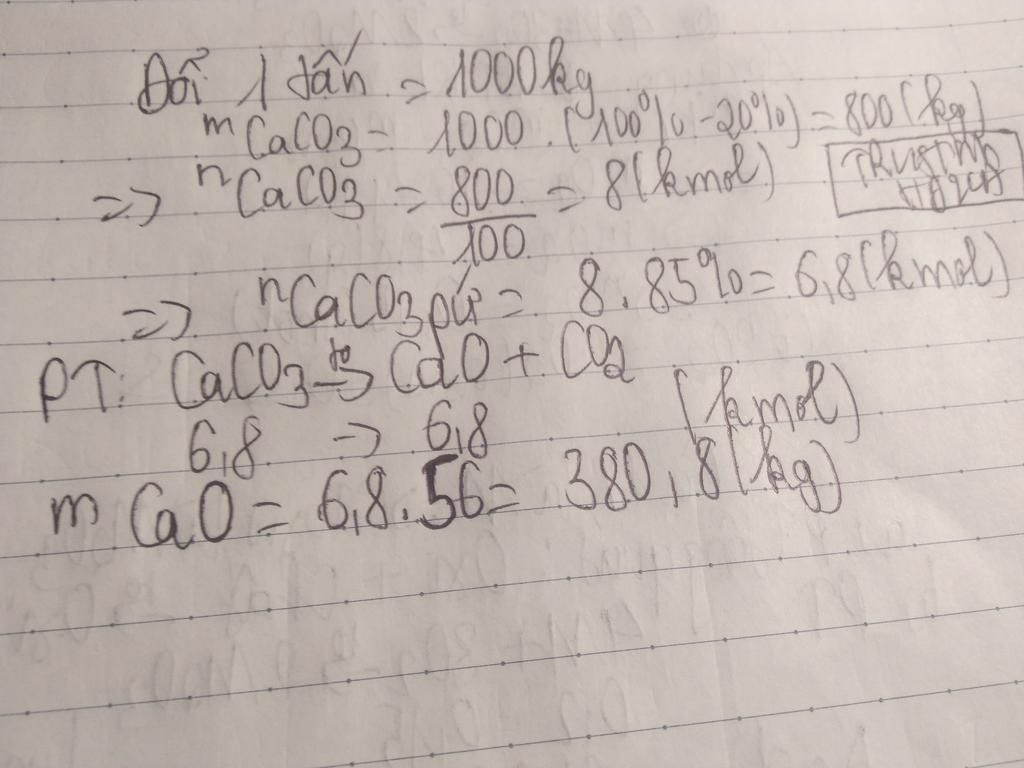 Đổi 1 tấn = 1000kg
mCaCO3 = 1000.(100%-20%)=800(kg)
=> nCaCO3 = 800/100 = 8(kmol)
=> nCaCO3 pứ = 8.85%=6,8(kmol)
PT: CaCO3 -to-> CaO + CO2
6,8 -> 6,8 (kmol)
mCaO = 6,8.56= 380,8(kg)